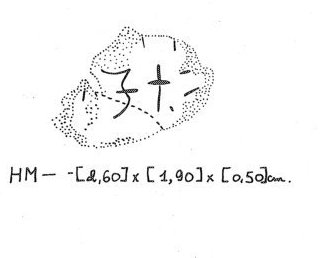 HM — -[2,60] x [1,90] x [0,50]cm.